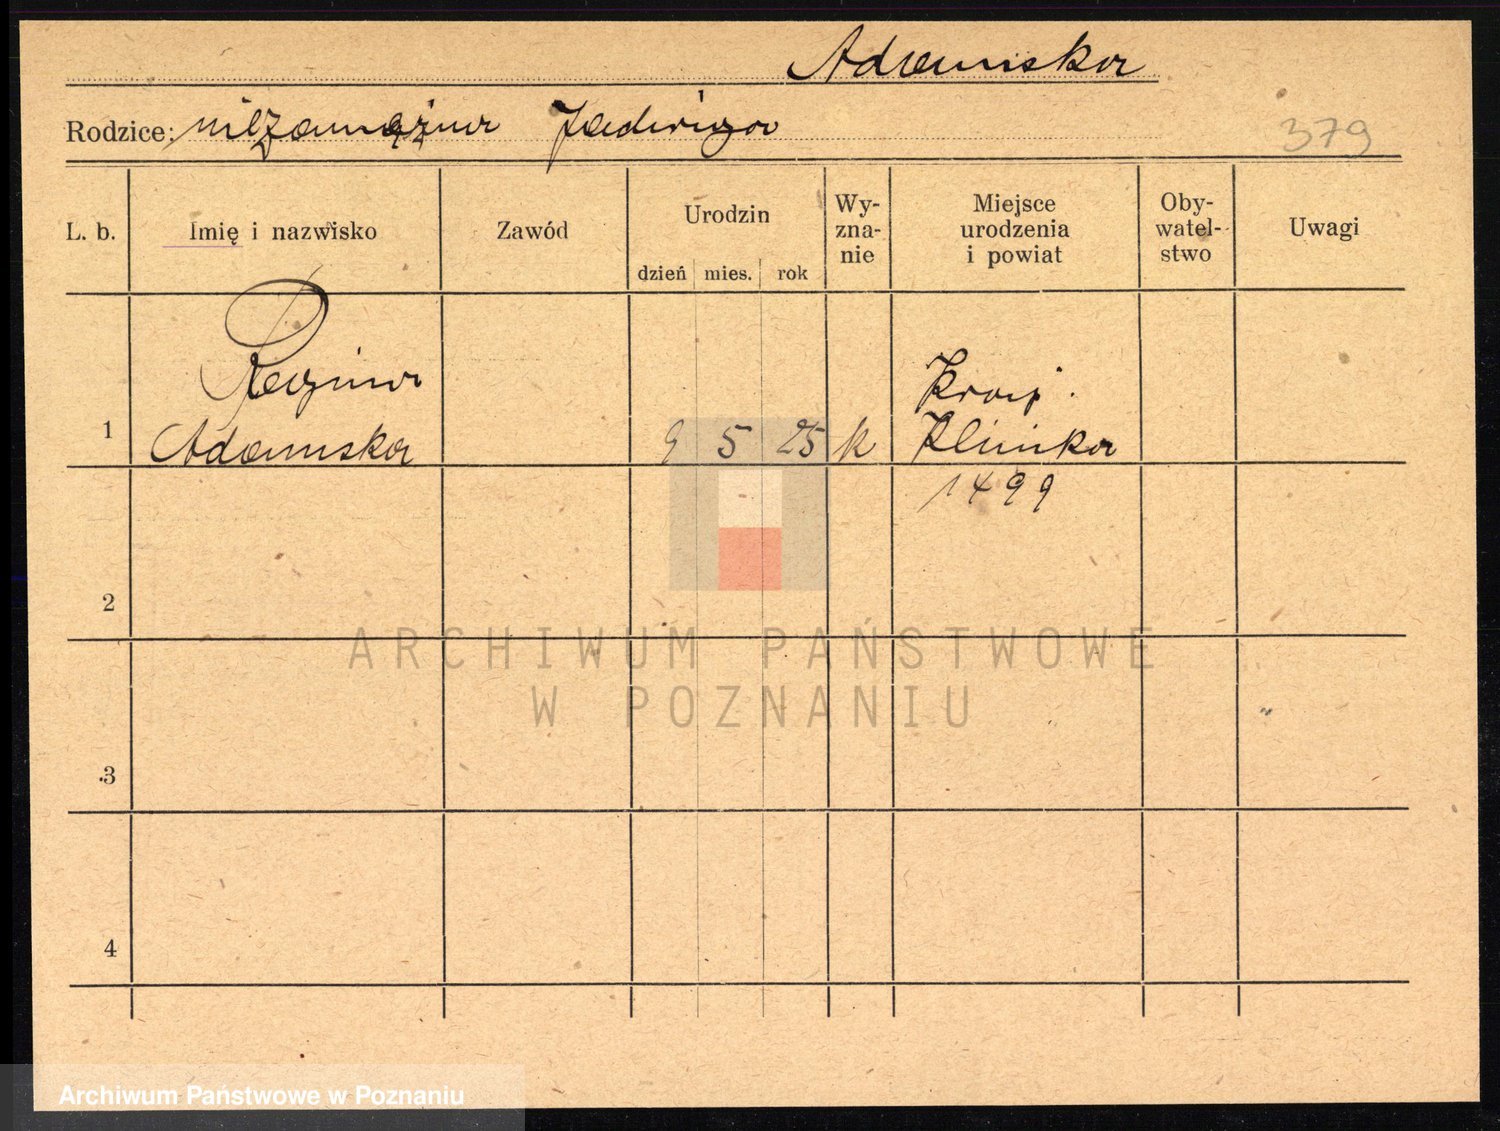 Adamska
Rodzice: niezamężna Jadwiga
379
L. b.
Imię i nazwisko
Zawód
Urodzin
dzień mies. rok
Wy-
zna-
nie
Miejsce
urodzenia
i powiat
Oby-
watel-
stwo
Uwagi
1
Regina
Adamska
9 5 25
k
Kraj.
Klinika
1499
2
3
4
ARCHIWUM PAŃSTWOWE
W POZNANIU
Archiwum Państwowe w Poznaniu